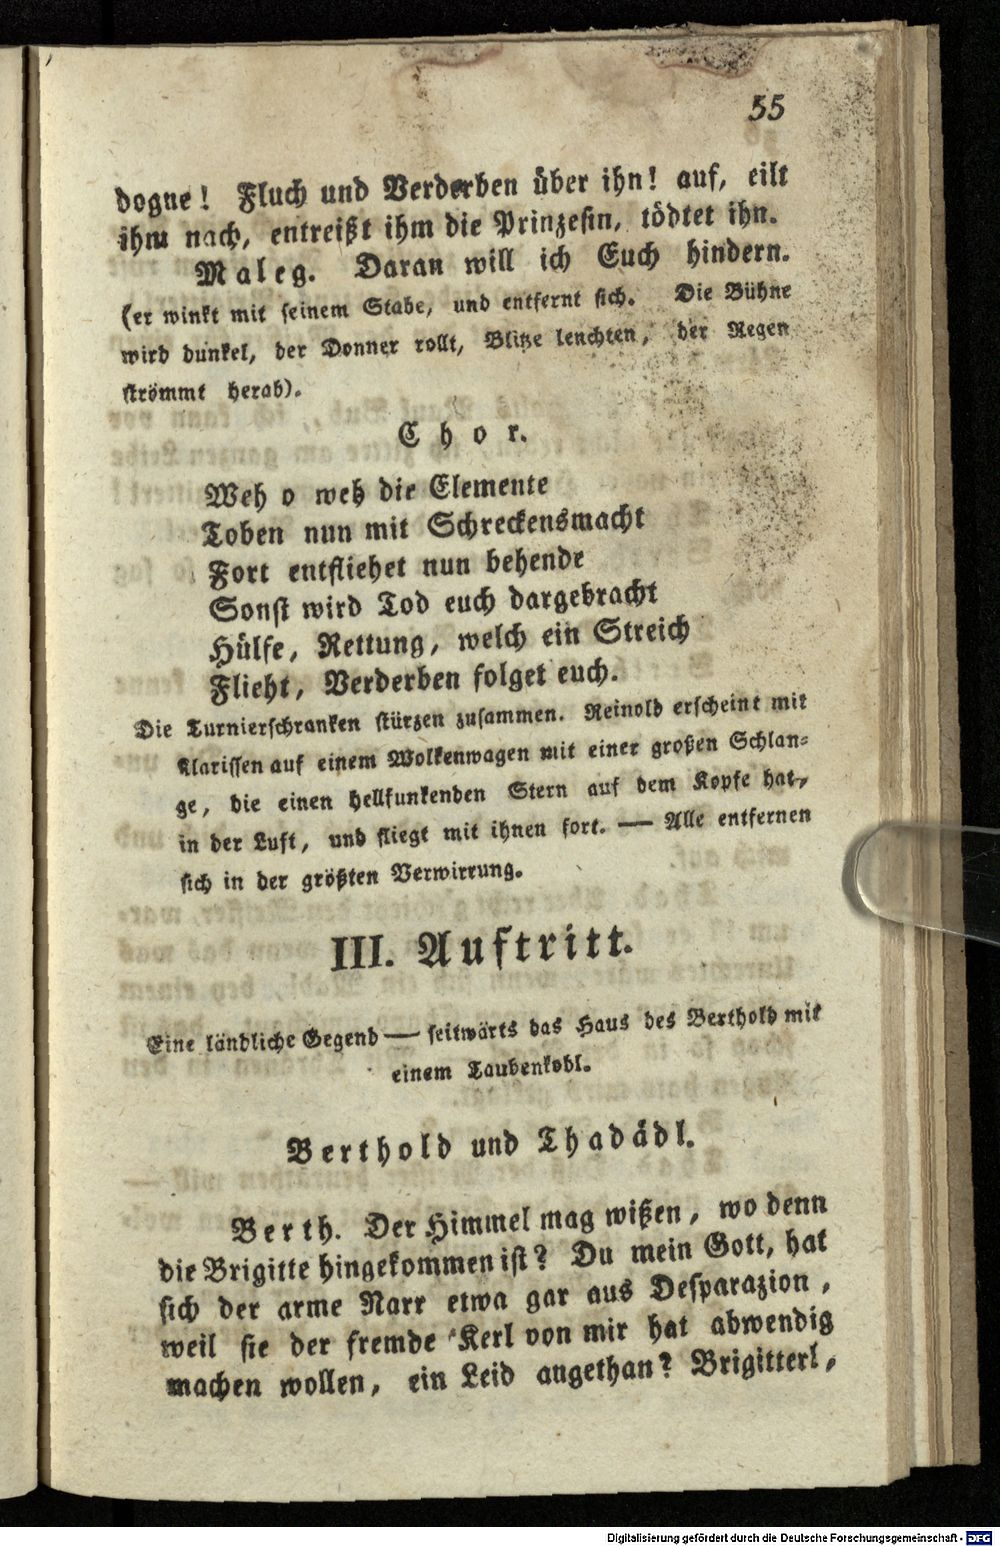 55
dogne! Fluch und Verderben über ihn! auf, eilt
ihm nach, entreißt ihm die Prinzesin, tödtet ihn.
Maleg. Daran will ich Euch hindern.
(er winkt mit seinem Stabe, und entfernt sich. Die Bühne
wird dunkel, der Donner rollt, Blitze lenchten, der Regen
strömmt herab).
Chor.
Weh o weh die Elemente
Toben nun mit Schreckensmacht
Fort entfliehet nun behende
Sonst wird Tod euch dargebracht
Hülfe, Rettung, welch ein Streich
Flieht, Verderben folget euch.
Die Turnierschranken stürzen zusammen. Reinold erscheint mit
Klarissen auf einem Wolkenwagen mit einer großen Schlan-
ge, die einen hellfunkenden Stern auf dem Kopfe hat,
in der Luft, und fliegt mit ihnen fort. — Alle entfernen
sich in der größten Verwirrung.
III. Auftritt.
Eine ländliche Gegend — seitwärts das Haus des Berthold mit
einem Taubenkobl.
Berthold und Thadädl.
Berth. Der Himmel mag wißen, wo denn
die Brigitte hingekommen ist? Du mein Gott, hat
sich der arme Narr etwa gar aus Desparazion,
weil sie der fremde Kerl von mir hat abwendig
machen wollen, ein Leid angethan? Brigitterl,
Digitalisierung gefördert durch die Deutsche Forschungsgemeinschaft - DFG